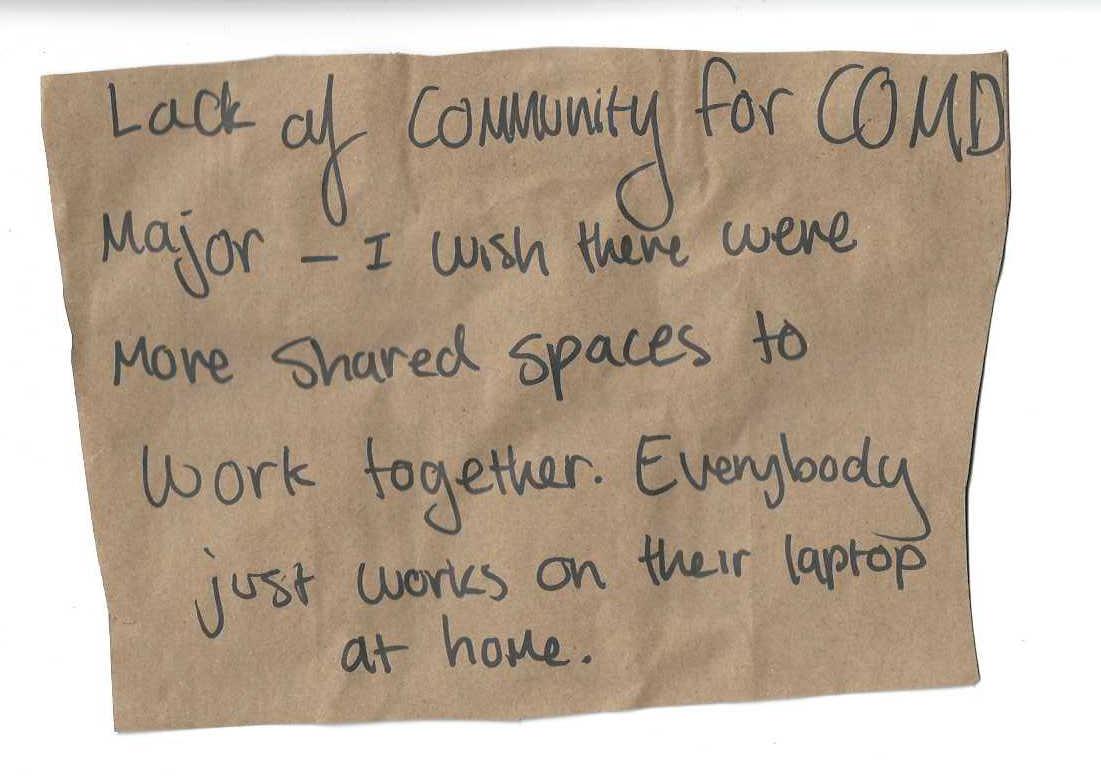 Lack of Community for COMD
Major - I wish there were
More Shared spaces to
Work together. Everybody
just works on their laptop
at home.